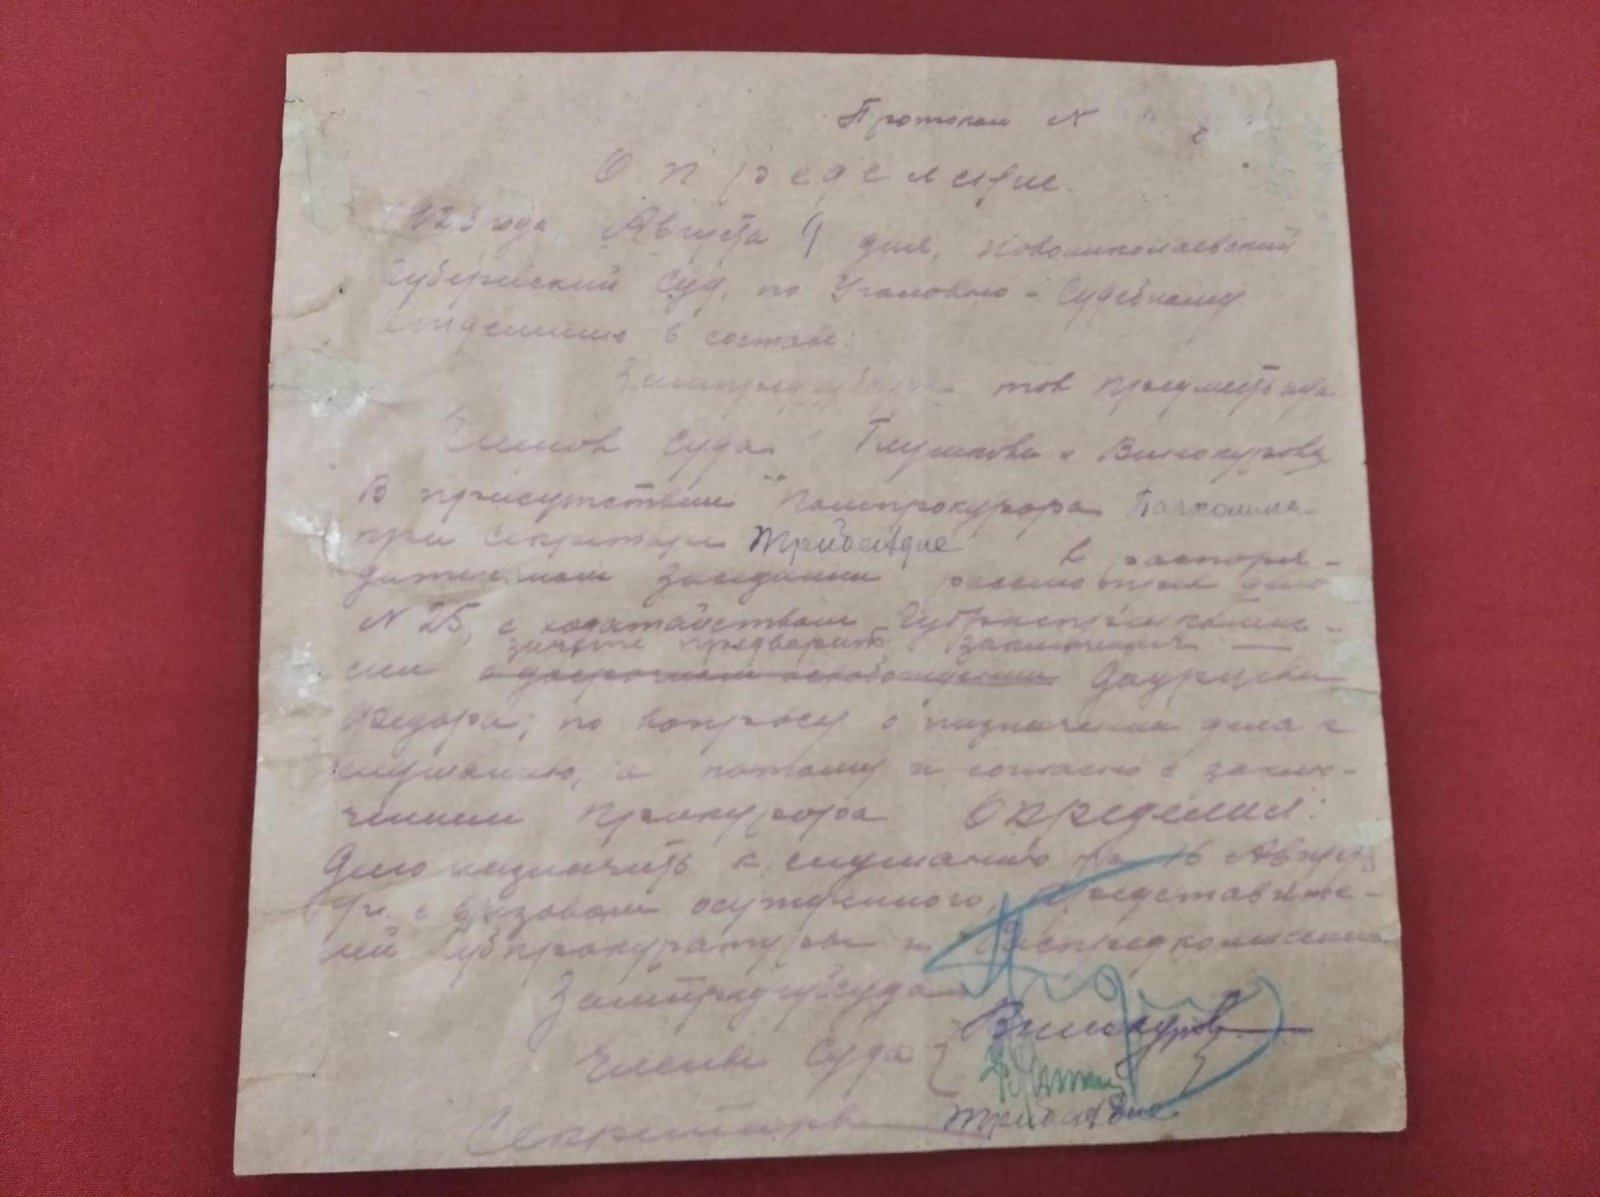 Протокол N
Определение.
1923 года Августа 9 дня, Новониколаевский
Губернский Суд, по Уголовно-Судебному
отделению в составе:
Зампредгубсуда тов
Членов Суда Глушкова и Винокурова
В присутствии Помпрокурора
при секретаре в распоря-
дительном заседании рассмотрев дело
N 25, с ходатайством Губраспредкомис-
зачете предварит заключения
сии о досрочном освобождении
Федора, по вопросу о назначении дела к
слушанию, а потому и согласно с заклю-
чением прокурора Определил:
Дело назначить к слушанию на 16 Августа
с вызовом осужденного, представите-
лей Губпрокуратуры и Распредкомиссии.
Зампредгубсуда
Винокуров
Члены Суда
Секретарь